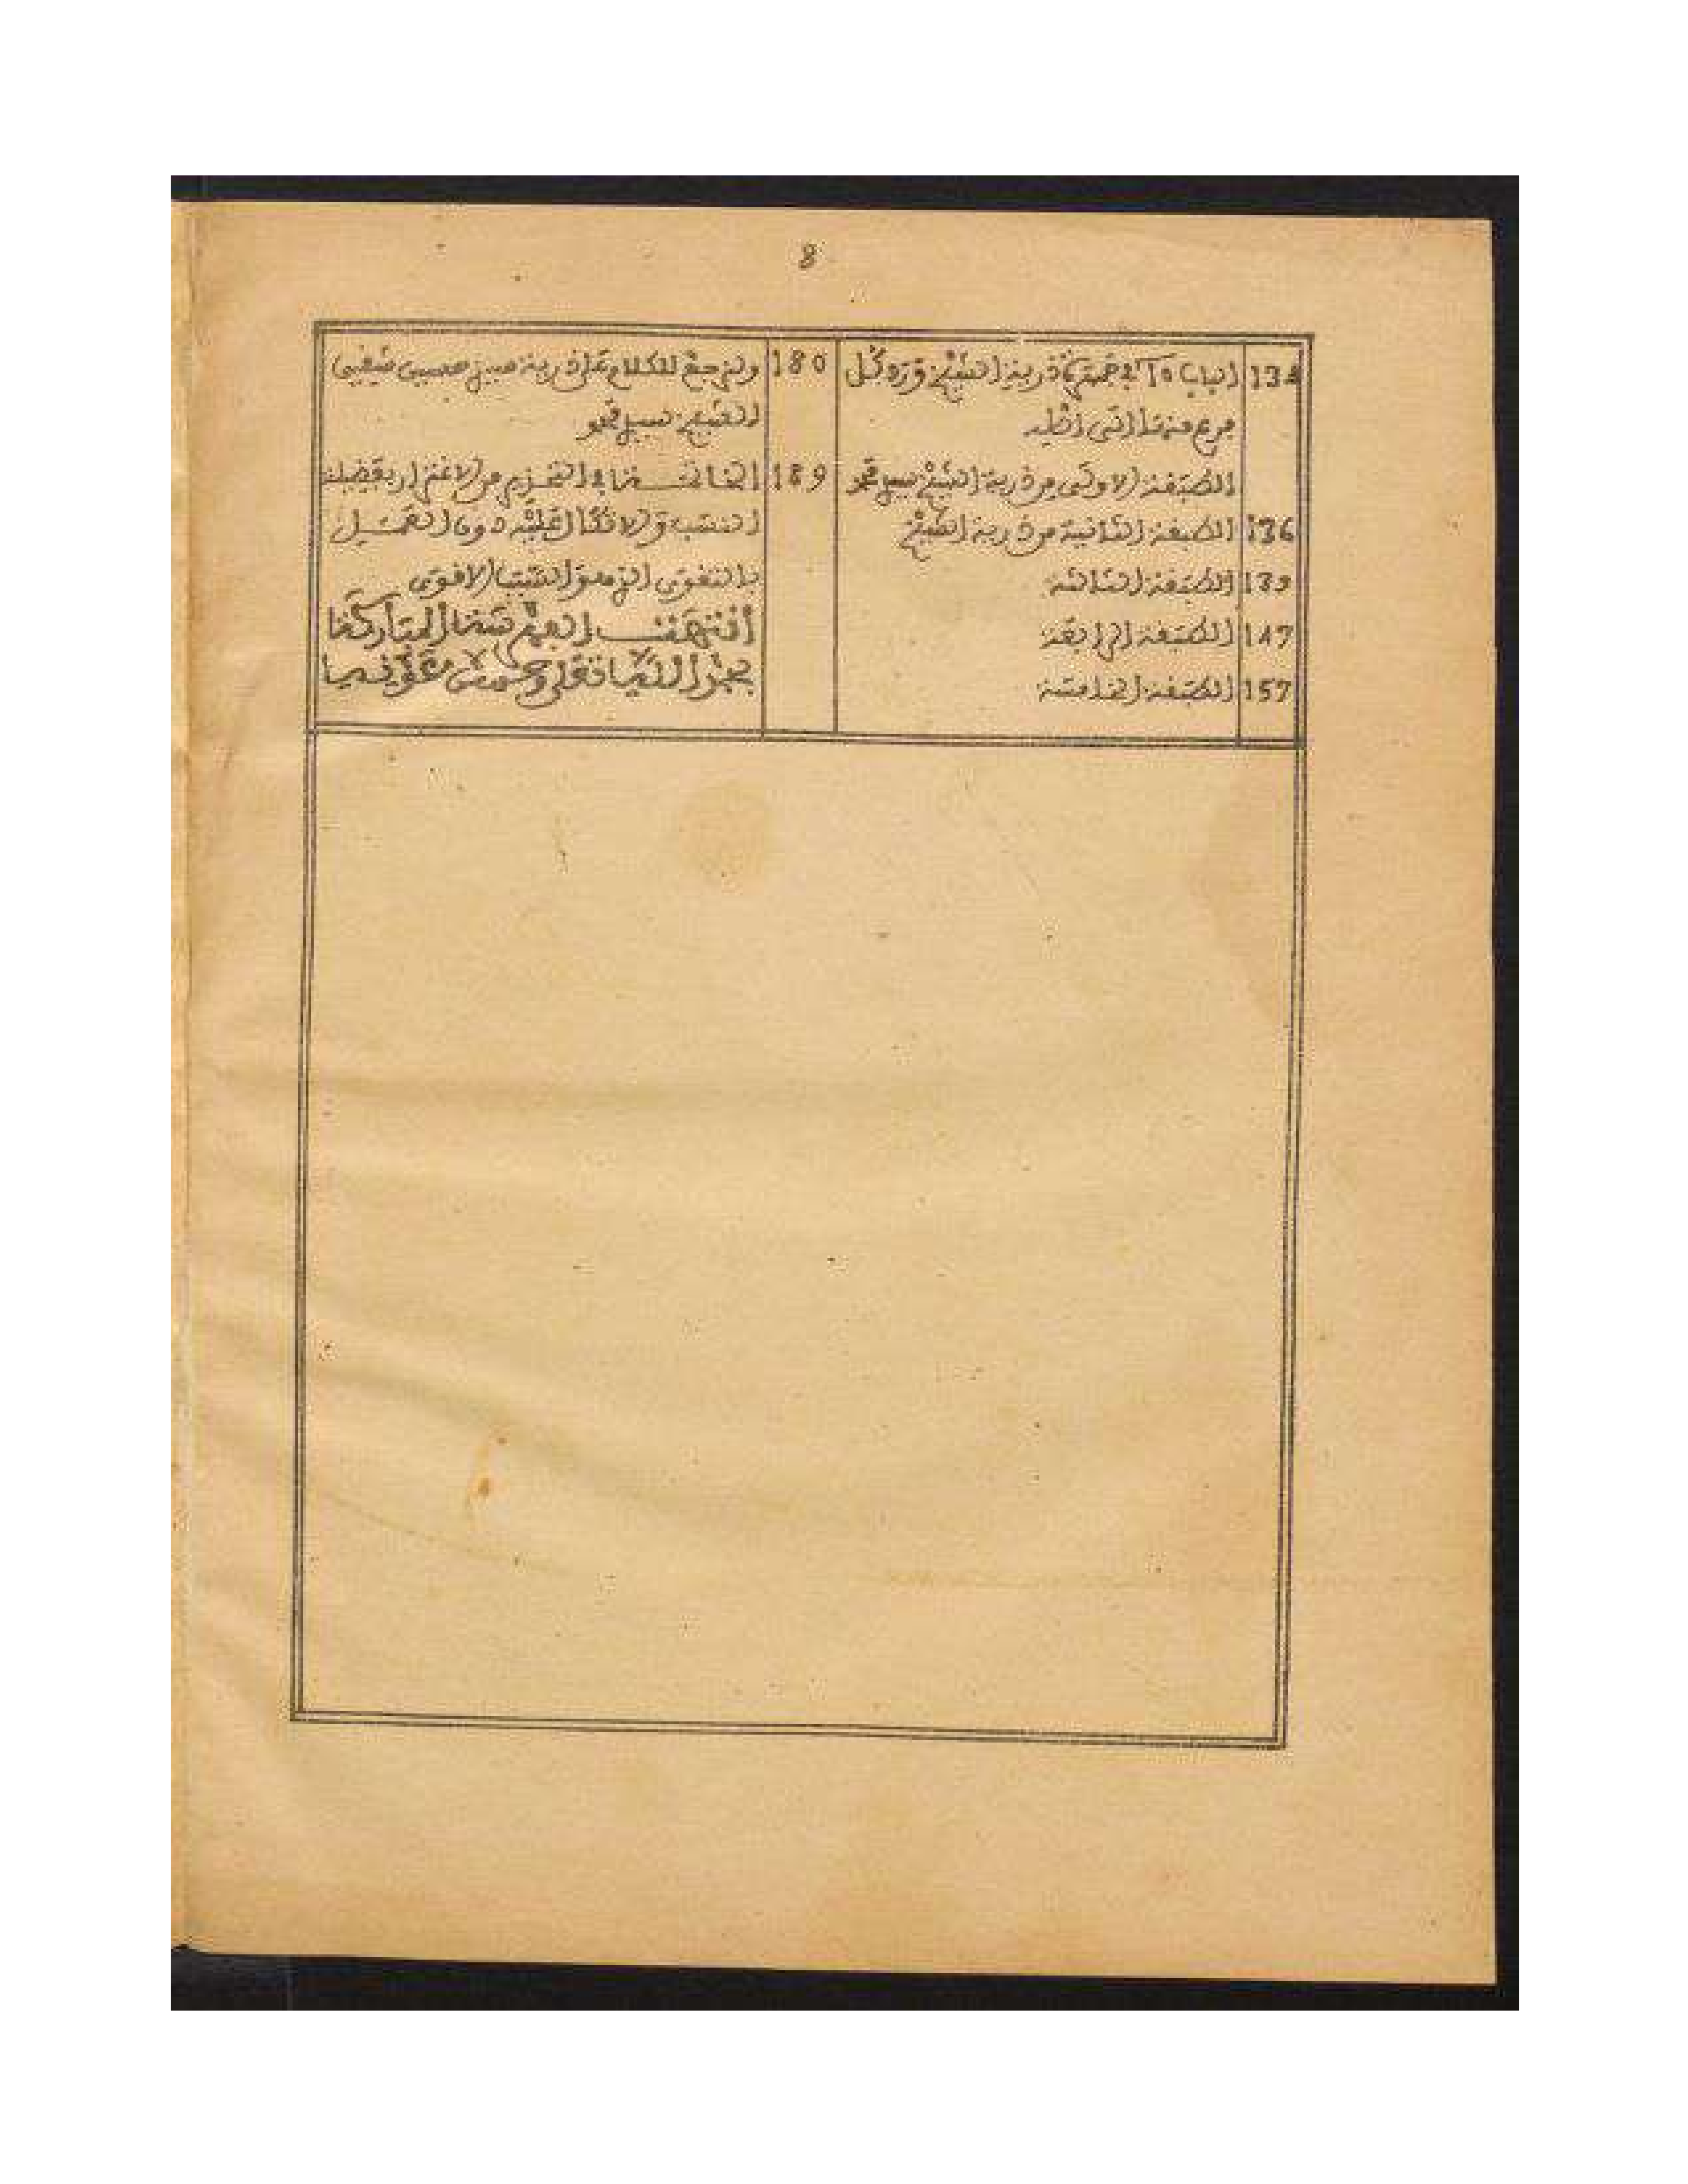 8
134 الباب ٥١ في ذرية الشيخ ورد كل
فرع منها الى اصله
الطبقة الاولى من ذرية الشيخ سيدي محمد
136 الطبقة الثانية من ذرية الشيخ
139 الطبقة الثالثة
147 الطبقة الرابعة
157 الطبقة الخامسة
180 ولنرجع للكلام على ذرية سيدي حسين شقيق
الشيخ سيدي محمد
189 الخاتمة في التحزيم من الاغترار بفضيلة
النسب والاتكال عليه دون العمل
بالتقوى الذي هو السبب الاقوى
انتهت المباركة
بحمد الله تعالى وحسن عونه